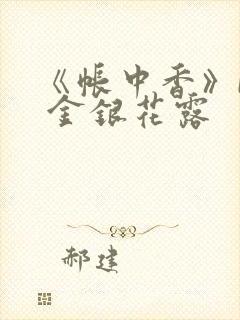 《帐中香》
金银花露
郝建